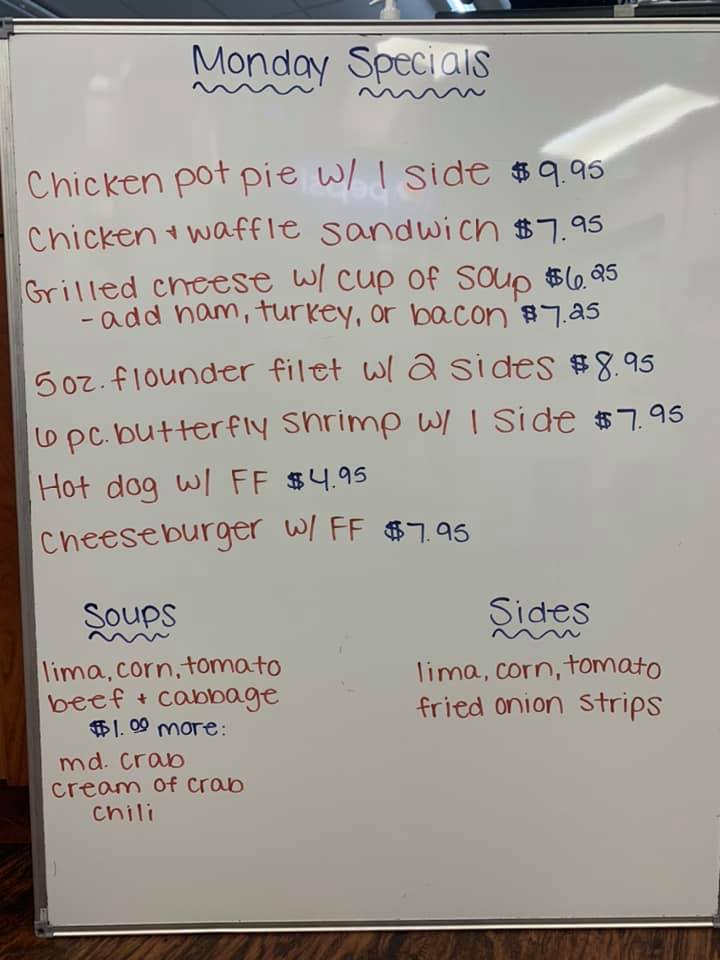 Monday Specials
Chicken pot pie w/ 1 side $9.95
Chicken & waffle sandwich $7.95
Grilled cheese w/ cup of soup $6.25
- add ham, turkey, or bacon $7.25
5 oz. flounder filet w/ 2 sides $8.95
6 pc. butterfly shrimp w/ 1 side $7.95
Hot dog w/ FF $4.95
Cheeseburger w/ FF $7.95
Soups
lima, corn, tomato
beef + cabbage
$1.00 more:
md. crab
cream of crab
chili
Sides
lima, corn, tomato
fried onion strips